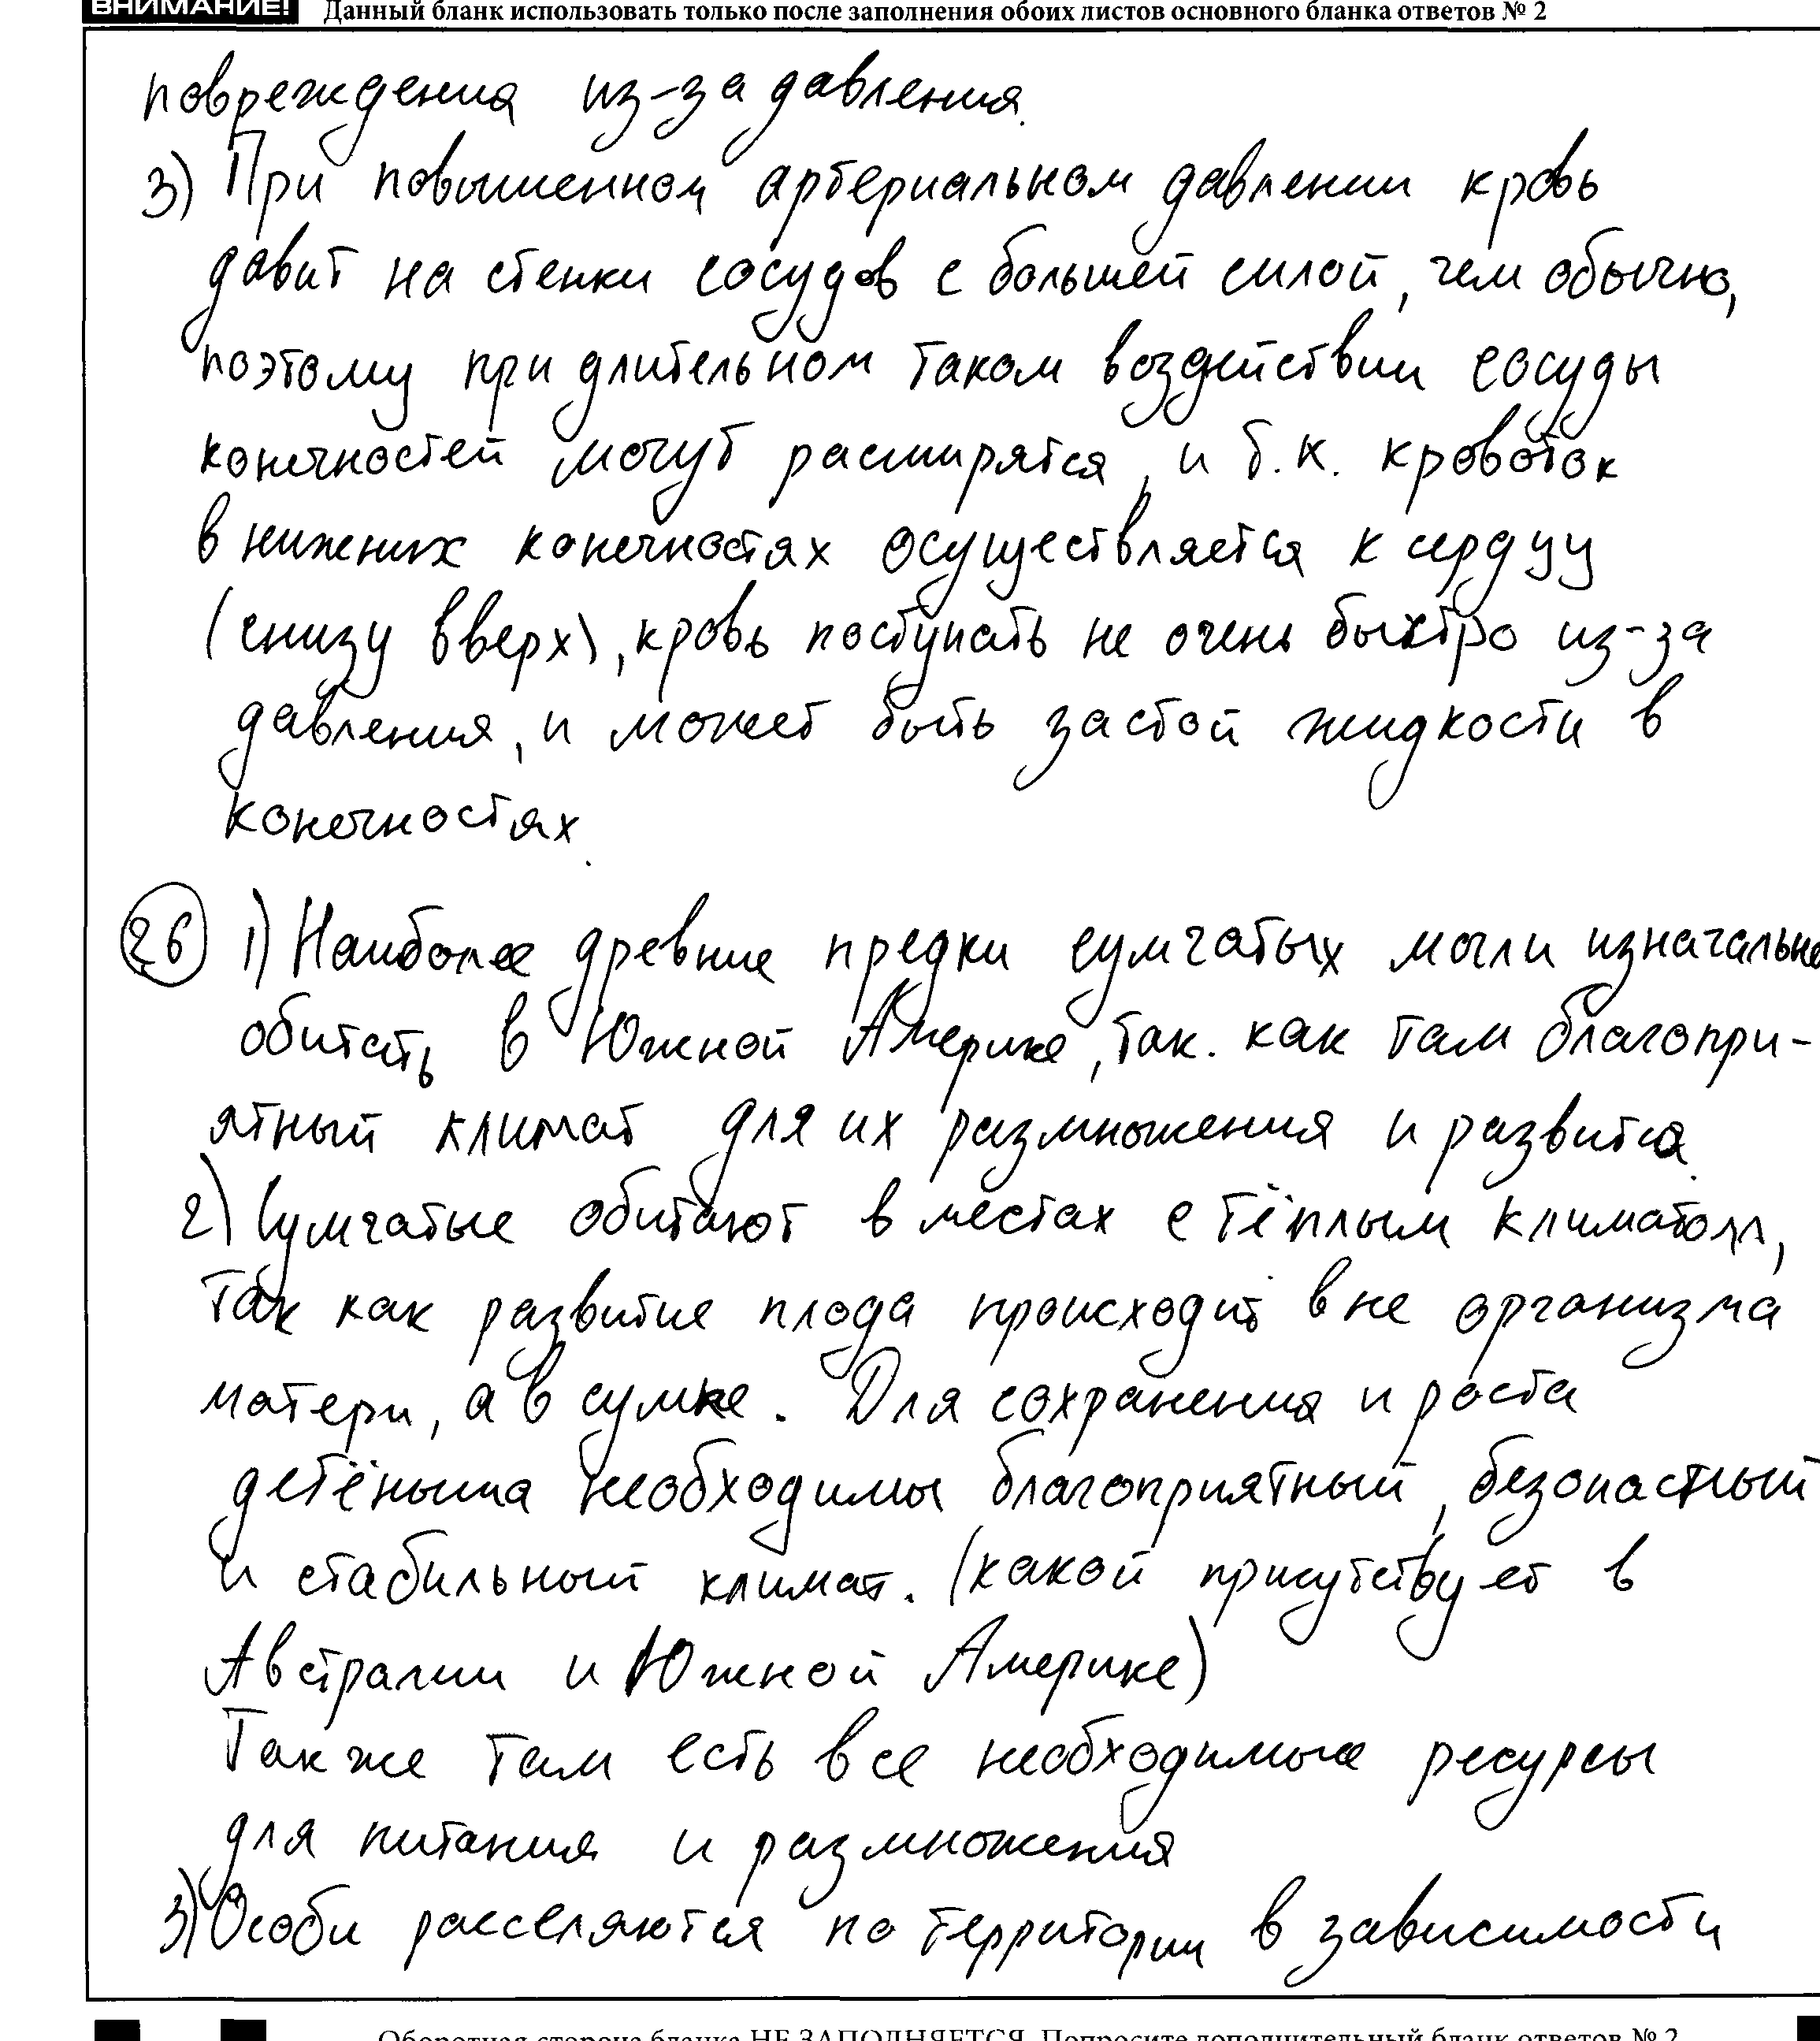 ВНИМАНИЕ! Данный бланк использовать только после заполнения обоих листов основного бланка ответов № 2
повреждения из-за давления.
3) При повышенном артериальном давлении кровь
давит на стенки сосудов с большей силой, чем обычно,
поэтому при длительном таком воздействии сосуды
конечностей могут расширятся, и т.к. кровоток
в нижених конечностях осуществляется к сердцу
(снизу вверх), кровь поступать не очень быстро из-за
давления, и может быть застой жидкости в
конечностях.
26 1) Наиболее древние предки сумчатых могли изначально
обитать в Южной Америке, так. как там благопри-
ятный климат для их размножения и развития.
2) Сумчатые обитают в местах с тёплым климатом,
так как развитие плода происходит вне организма
матери, а в сумке. Для сохранения и роста
детёныша необходимы благоприятный, безопастный
и стабильный климат. (какой присутствует в
Австралии и Южной Америке)
Также там есть все необходимые ресурсы
для питания и размножения
3) Особи расселяются по территории в зависимости
Оборотная сторона бланка НЕ ЗАПОЛНЯЕТСЯ. Попросите дополнительный бланк ответов № 2